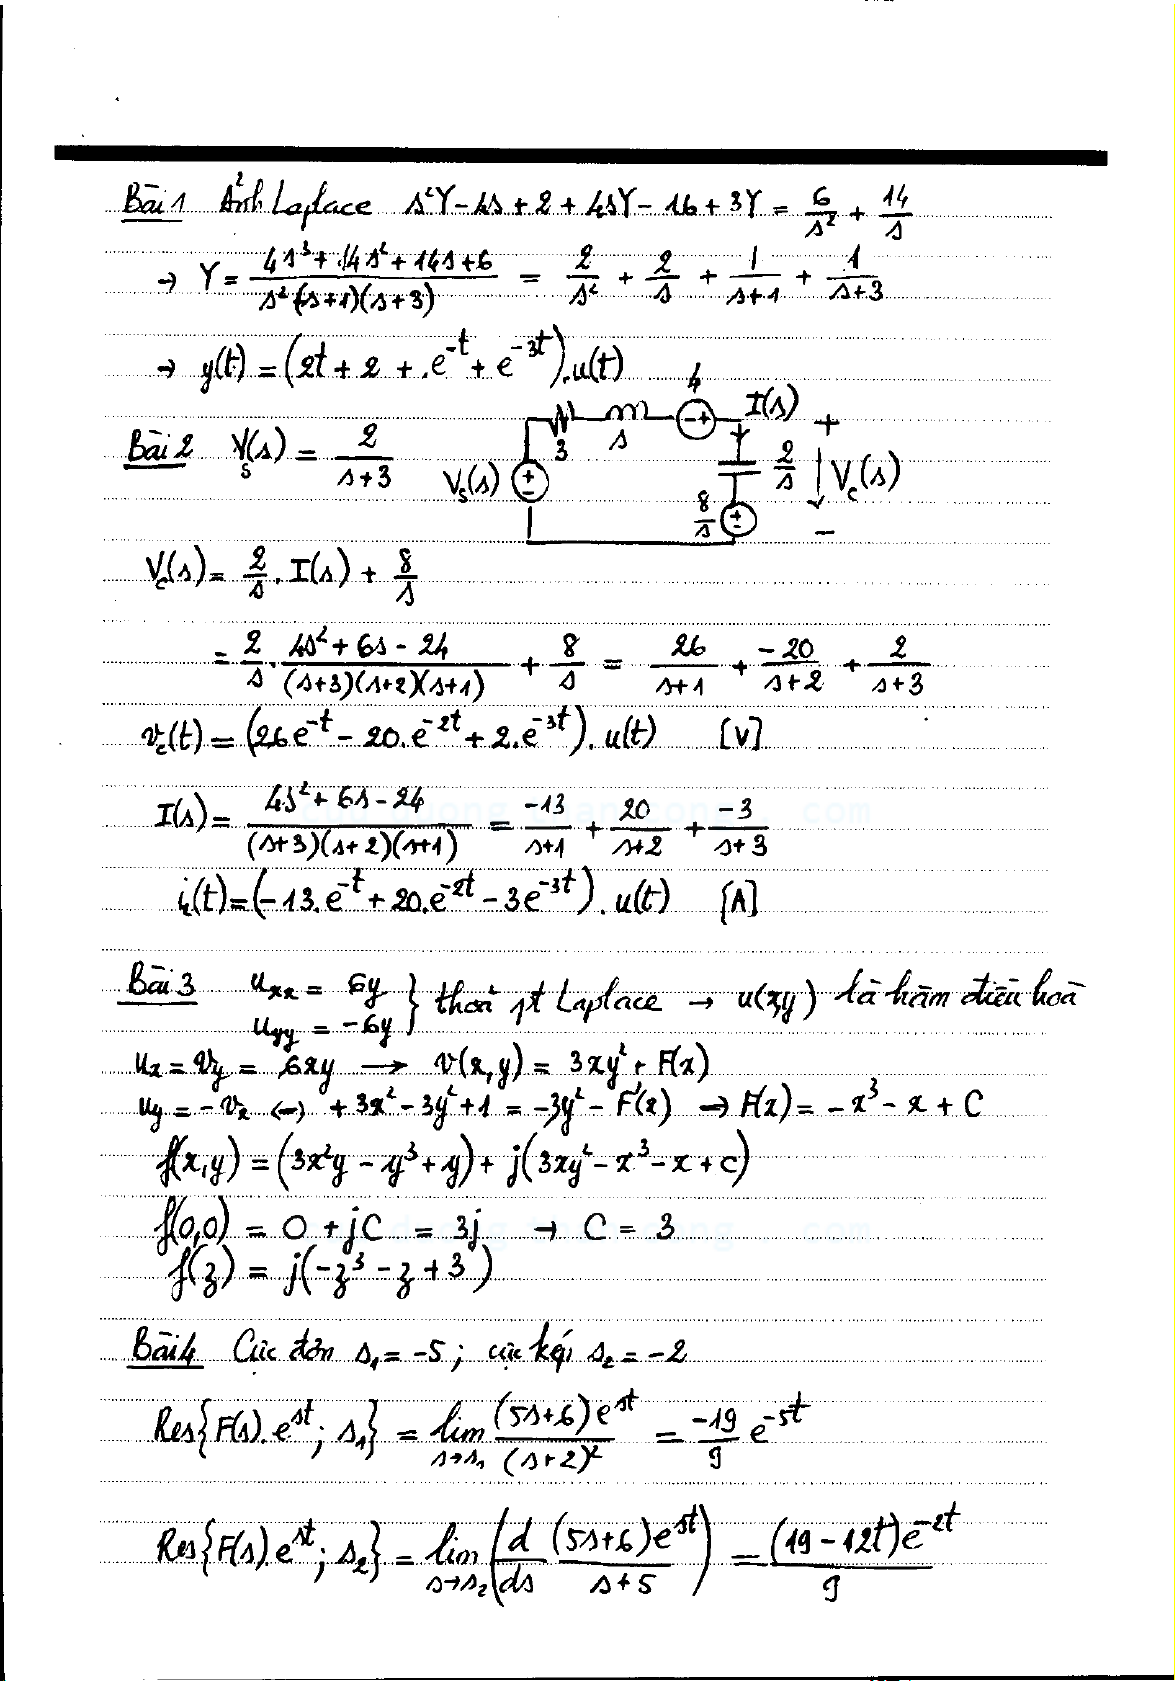 Bài 1 Ảnh Laplace s²Y - 4s + 2 + 4sY - 16 + 3Y = 6/s² + 14/s
→ Y = (4s³ + 14s² + 14s + 6)/(s²(s+1)(s+3)) = 2/s² + 2/s + 1/(s+1) + 1/(s+3)
→ y(t) = (2t + 2 + e^-t + e^-3t).u(t)
Bài 2 Vs(s) = 2/(s+3)
Vs(s) + - 3 s 4 - + I(s) 2/s 8/s + - + Vc(s) -
Vc(s) = 2/s . I(s) + 8/s
= 2/s . (4s² + 6s - 24)/((s+3)(s+2)(s+1)) + 8/s = 26/(s+1) + -20/(s+2) + 2/(s+3)
vc(t) = (26e^-t - 20.e^-2t + 2.e^-3t). u(t) [V]
I(s) = (4s² + 6s - 24)/((s+3)(s+2)(s+1)) = -13/(s+1) + 20/(s+2) + -3/(s+3)
i(t) = (-13.e^-t + 20.e^-2t - 3e^-3t). u(t) [A]
Bài 3 uxx = 6y
uyy = -6y } thoả pt Laplace → u(x,y) là hàm điều hoà
ux = vy = 6xy → v(x,y) = 3xy² + F(x)
uy = -vx ↔ +3x² - 3y² + 1 = -3y² - F'(x) → F(x) = -x³ - x + C
f(x,y) = (3x²y - y³ + y) + j(3xy² - x³ - x + c)
f(0,0) = 0 + jC = 3j → C = 3
f(z) = j(-z³ - z + 3)
Bài 4 Cực đơn s₁ = -5 ; cực kép s₂ = -2
Res{F(s).e^st ; s₁} = lim s→s₁ (5s+6)e^st/(s+2)² = -19/9 e^-5t
Res{F(s).e^st ; s₂} = lim s→s₂ (d/ds (5s+6)e^st/(s+5)) = (19 - 12t)e^-2t/9